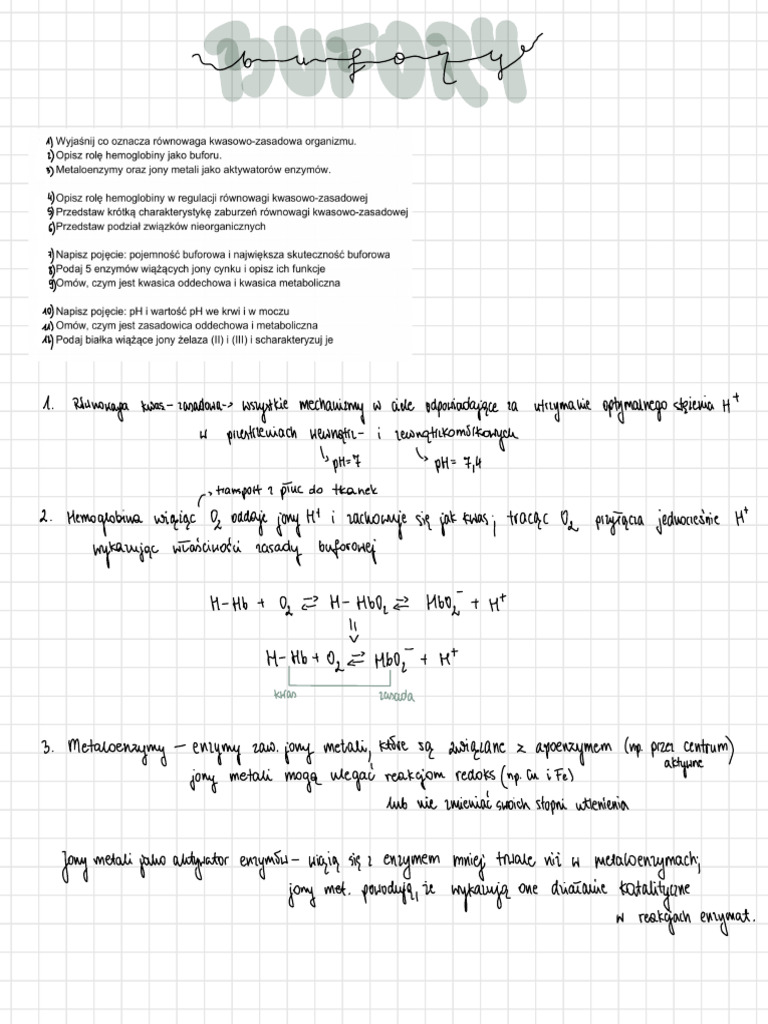 BUFORY
bufory
1) Wyjaśnij co oznacza równowaga kwasowo-zasadowa organizmu.
2) Opisz rolę hemoglobiny jako buforu.
3) Metaloenzymy oraz jony metali jako aktywatorów enzymów.
4) Opisz rolę hemoglobiny w regulacji równowagi kwasowo-zasadowej
5) Przedstaw krótką charakterystykę zaburzeń równowagi kwasowo-zasadowej
6) Przedstaw podział związków nieorganicznych
7) Napisz pojęcie: pojemność buforowa i największa skuteczność buforowa
8) Podaj 5 enzymów wiążących jony cynku i opisz ich funkcje
9) Omów, czym jest kwasica oddechowa i kwasica metaboliczna
10) Napisz pojęcie: pH i wartość pH we krwi i w moczu
11) Omów, czym jest zasadowica oddechowa i metaboliczna
12) Podaj białka wiążące jony żelaza (II) i (III) i scharakteryzuj je
1. Równowaga kwas-zasadowa -> wszystkie mechanizmy w ciele odpowiadające za utrzymanie optymalnego stężenia H⁺
w przestrzeniach wewnątrz- i zewnątrzkomórkowych
pH=7 pH= 7,4
transport z płuc do tkanek
2. Hemoglobina wiążąc O₂ oddaje jony H⁺ i zachowuje się jak kwas; tracąc O₂ przyłącza jednocześnie H⁺
wykazując właściwości zasady buforowej
H-Hb + O₂ ⇄ H-HbO₂ ⇄ HbO₂⁻ + H⁺
⇓
H-Hb + O₂ ⇄ HbO₂⁻ + H⁺
kwas zasada
3. Metaloenzymy – enzymy zaw. jony metali, które są związane z apoenzymem (np. przez centrum)
aktywne
jony metali mogą ulegać reakcjom redoks (np. Cu i Fe)
lub nie zmieniać swoich stopni utlenienia
Jony metali jako aktywator enzymów – wiążą się z enzymem mniej trwale niż w metaloenzymach;
jony met. powodują, że wykazują one działanie katalityczne
w reakcjach enzymat.